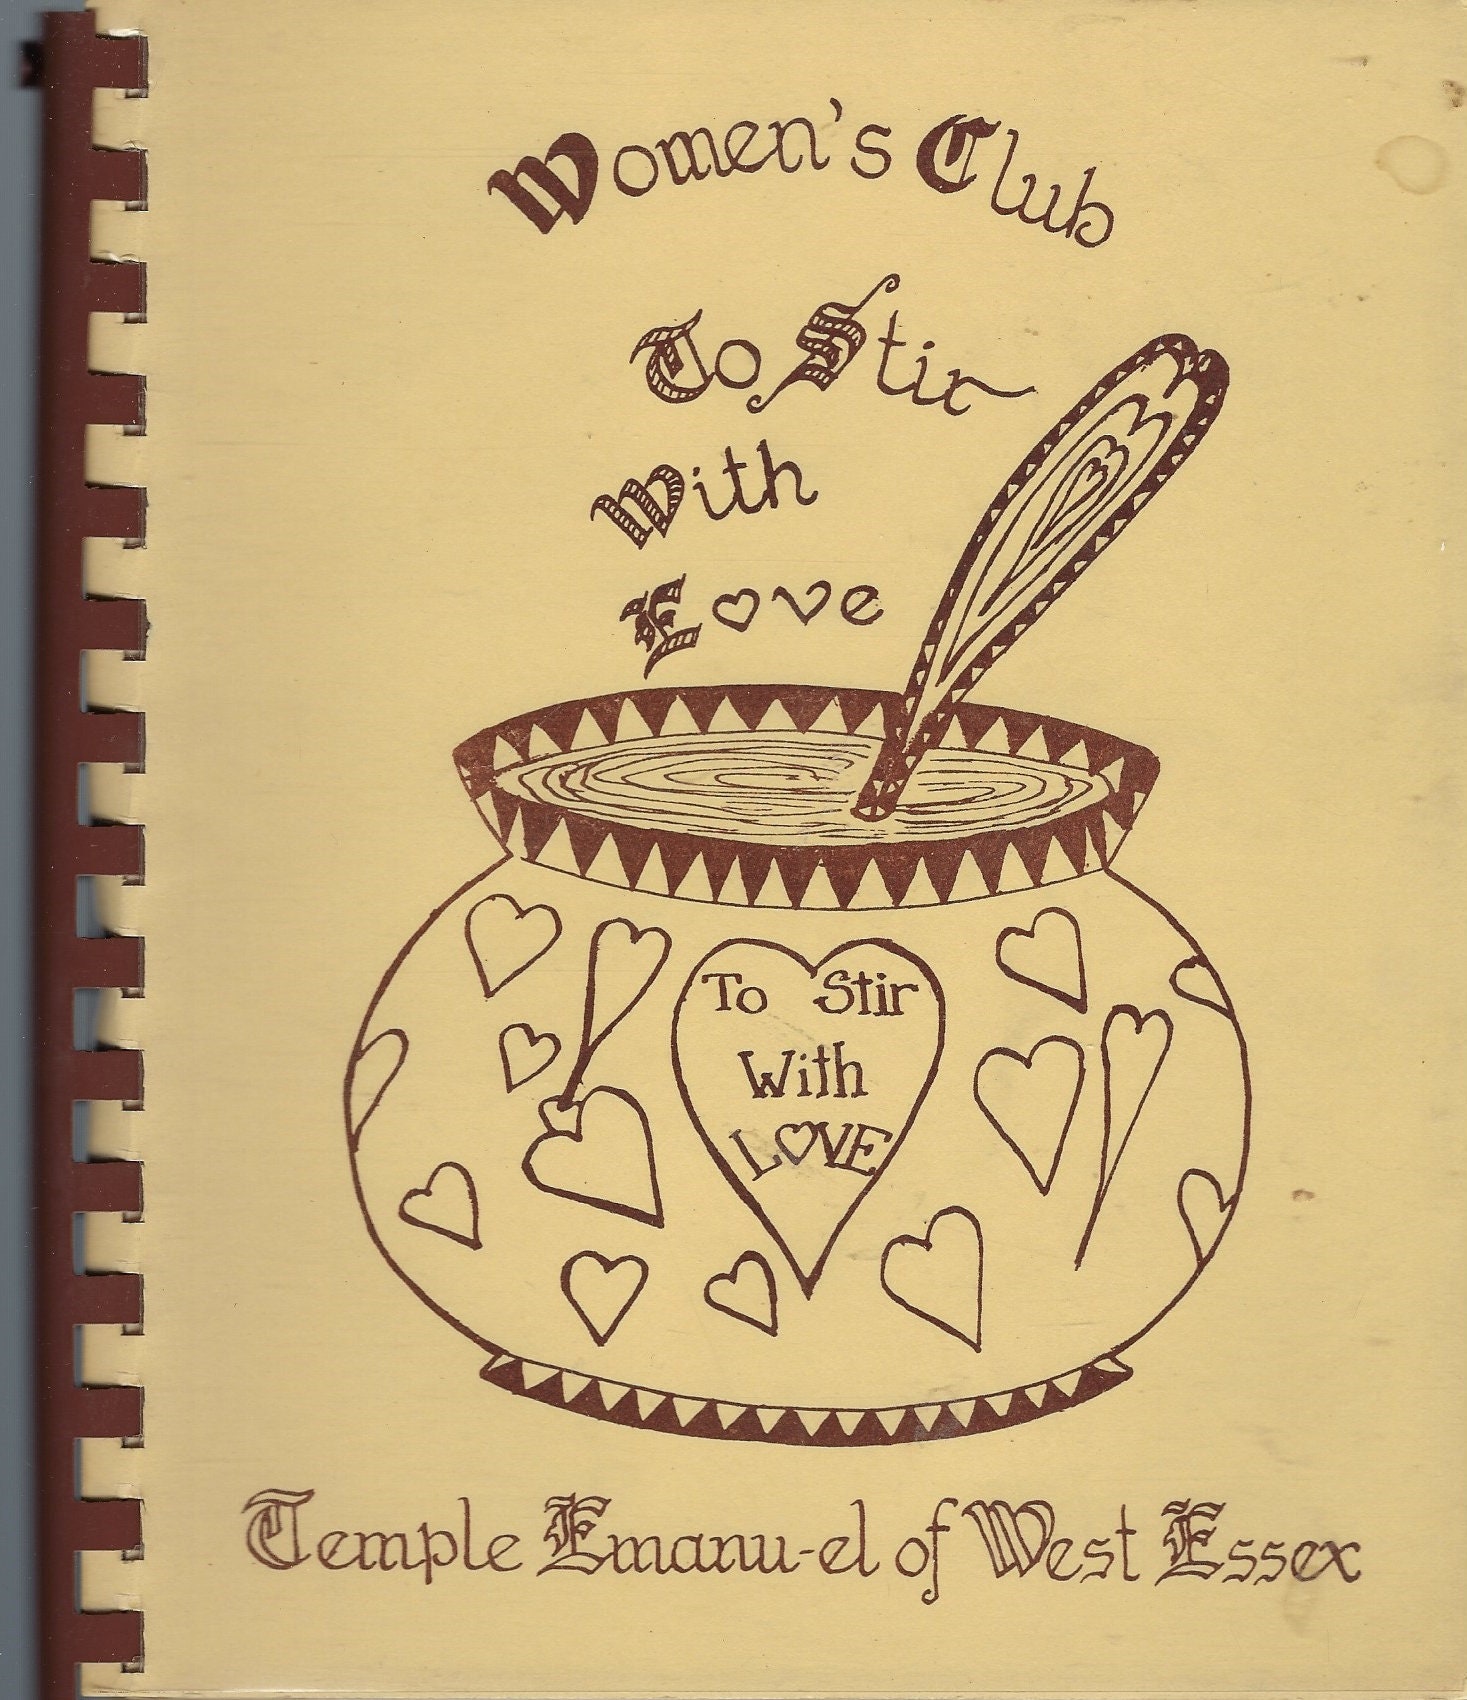 Women's Club
To Stir
With
Love
To Stir
With
LOVE
Temple Emanu-el of West Essex